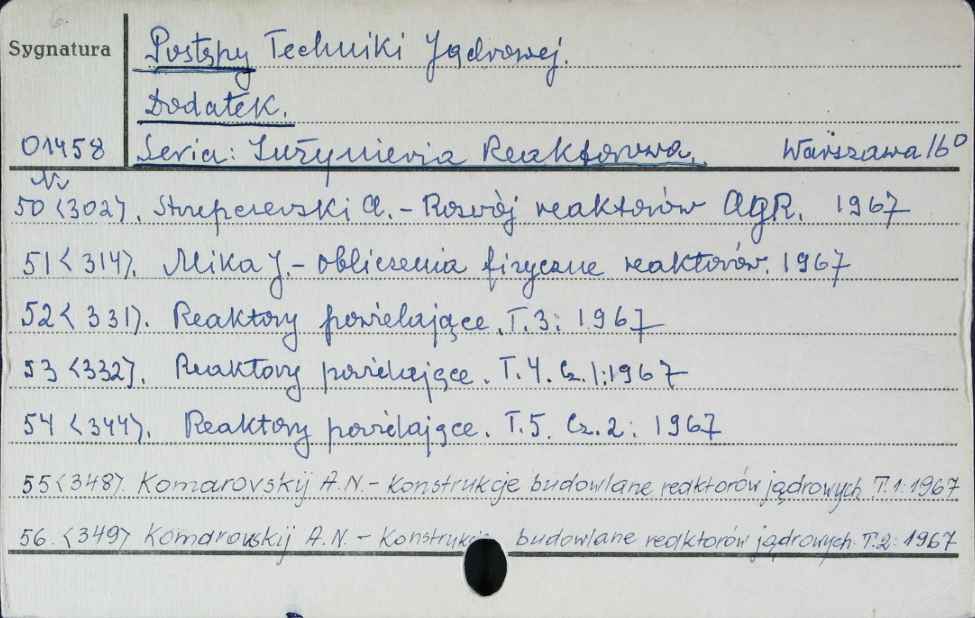 6.
Sygnatura Postępy Techniki Jądrowej.
Dodatek.
01458 Seria: Inżynieria Reaktorowa. Warszawa 16°
Nr
50 <302>. Strupczewski A. - Rozwój reaktorów AGR. 1967
51 <314>. Mika J. - obliczenia fizyczne reaktorów. 1967
52 <331>. Reaktory powielające. T.3: 1967
53 <332>. Reaktory powielające. T.4. Cz.1: 1967
54 <344>. Reaktory powielające. T.5. Cz.2: 1967
55 <348> Komarovskij A.N. - Konstrukcje budowlane reaktorów jądrowych T.1: 1967
56. <349> Komarovskij A.N. - Konstrukcje budowlane reaktorów jądrowych T.2: 1967